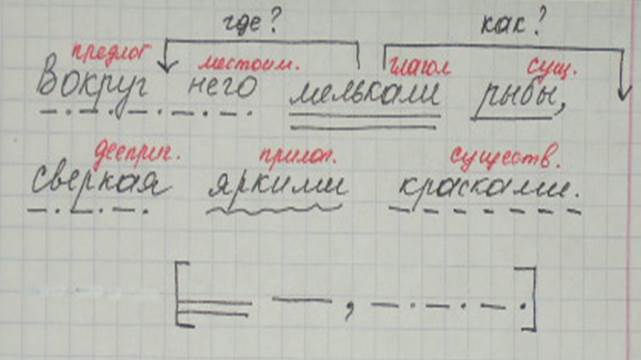 где? как?
предлог местоим. глагол сущ.
Вокруг него мелькали рыбы,
дееприч. прилаг. существ.
сверкая яркими красками.
[ , ]